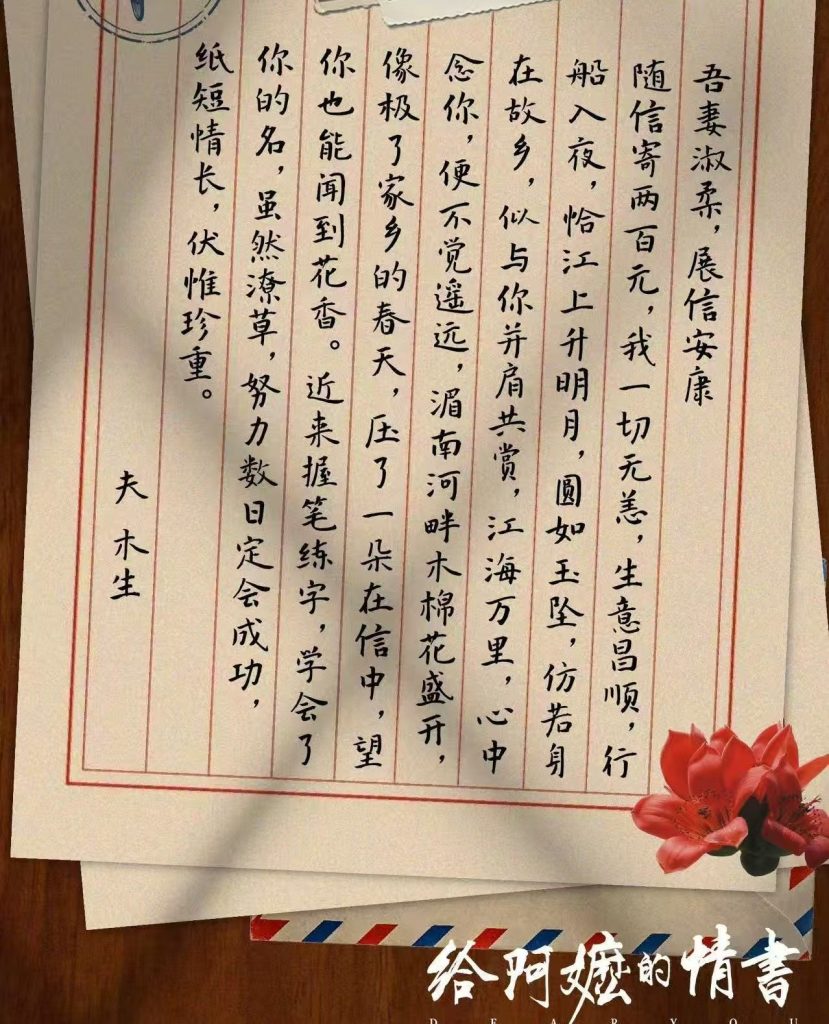 吾妻淑柔，展信安康
随信寄两百元，我一切无恙，生意昌顺，行
船入夜，恰江上升明月，圆如玉坠，仿若身
在故乡，似与你并肩共赏，江海万里，心中
念你，便不觉遥远，湄南河畔木棉花盛开，
像极了家乡的春天，压了一朵在信中，望
你也能闻到花香。近来握笔练字，学会了
你的名，虽然潦草，努力数日定会成功，
纸短情长，伏惟珍重。
夫 木生
给阿嬷的情書
DEAR YOU